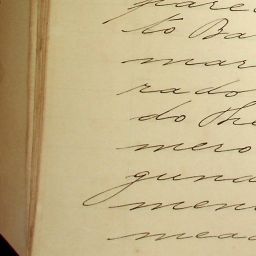 pare
to Ba
mar
rado
do The
mero
gund
men
mea